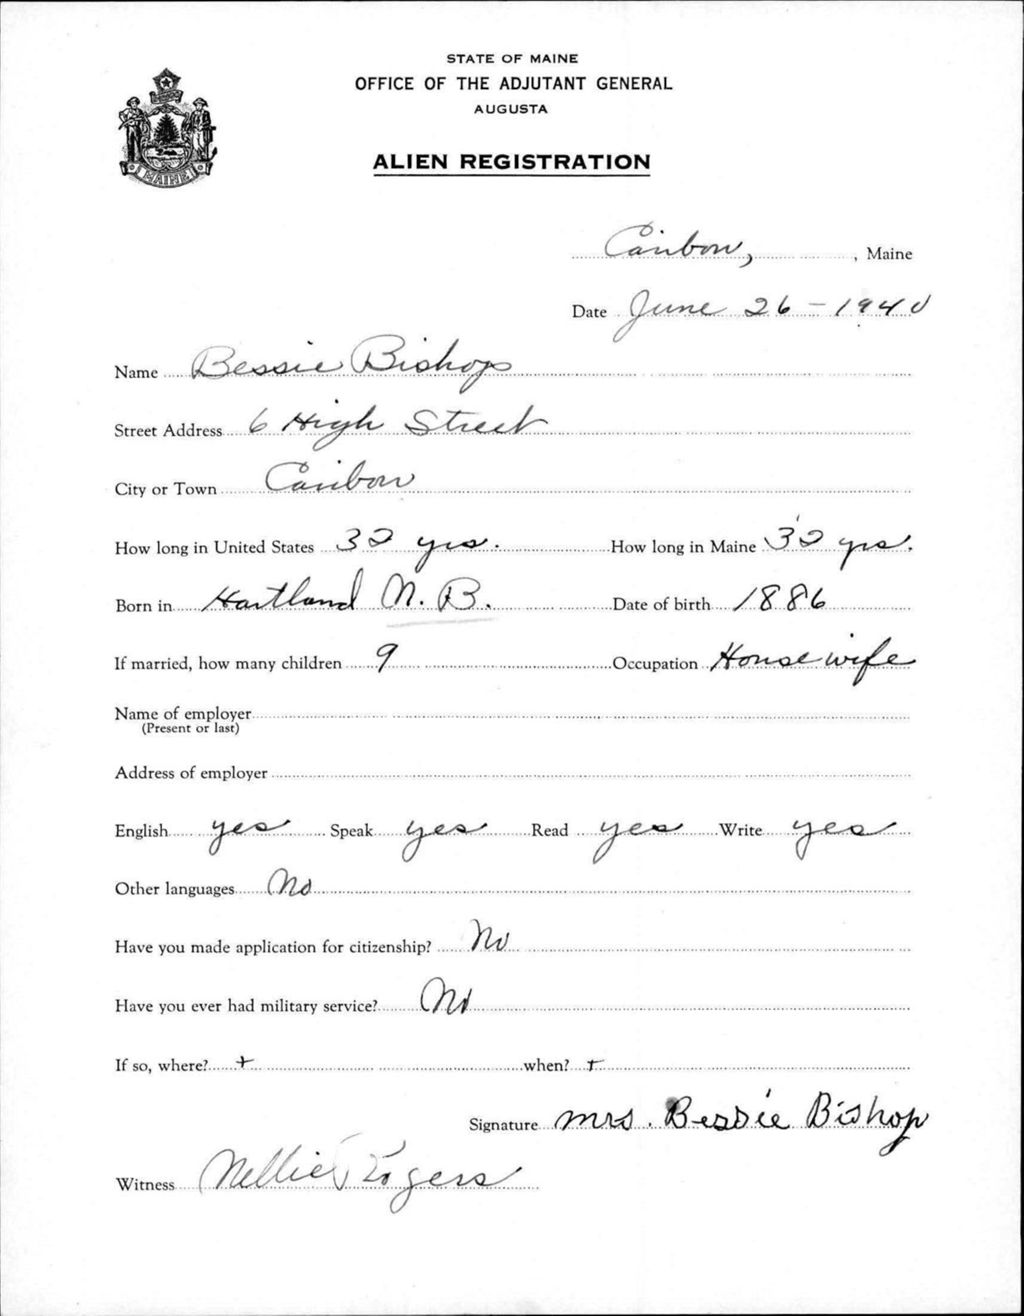 STATE OF MAINE
OFFICE OF THE ADJUTANT GENERAL
AUGUSTA
MAINE
ALIEN REGISTRATION
Caribou, , Maine
Date June 26 - 1940
Name Bessie Bishop
Street Address 6 High Street
City or Town Caribou
How long in United States 32 yrs. How long in Maine 32 yrs.
Born in Hartland N.B. Date of birth 1886
If married, how many children 9 Occupation Housewife
Name of employer
(Present or last)
Address of employer
English yes Speak yes Read yes Write yes
Other languages No
Have you made application for citizenship? No
Have you ever had military service? No
If so, where? + when? +
Signature Mrs. Bessie Bishop
Witness Nellie Rogers